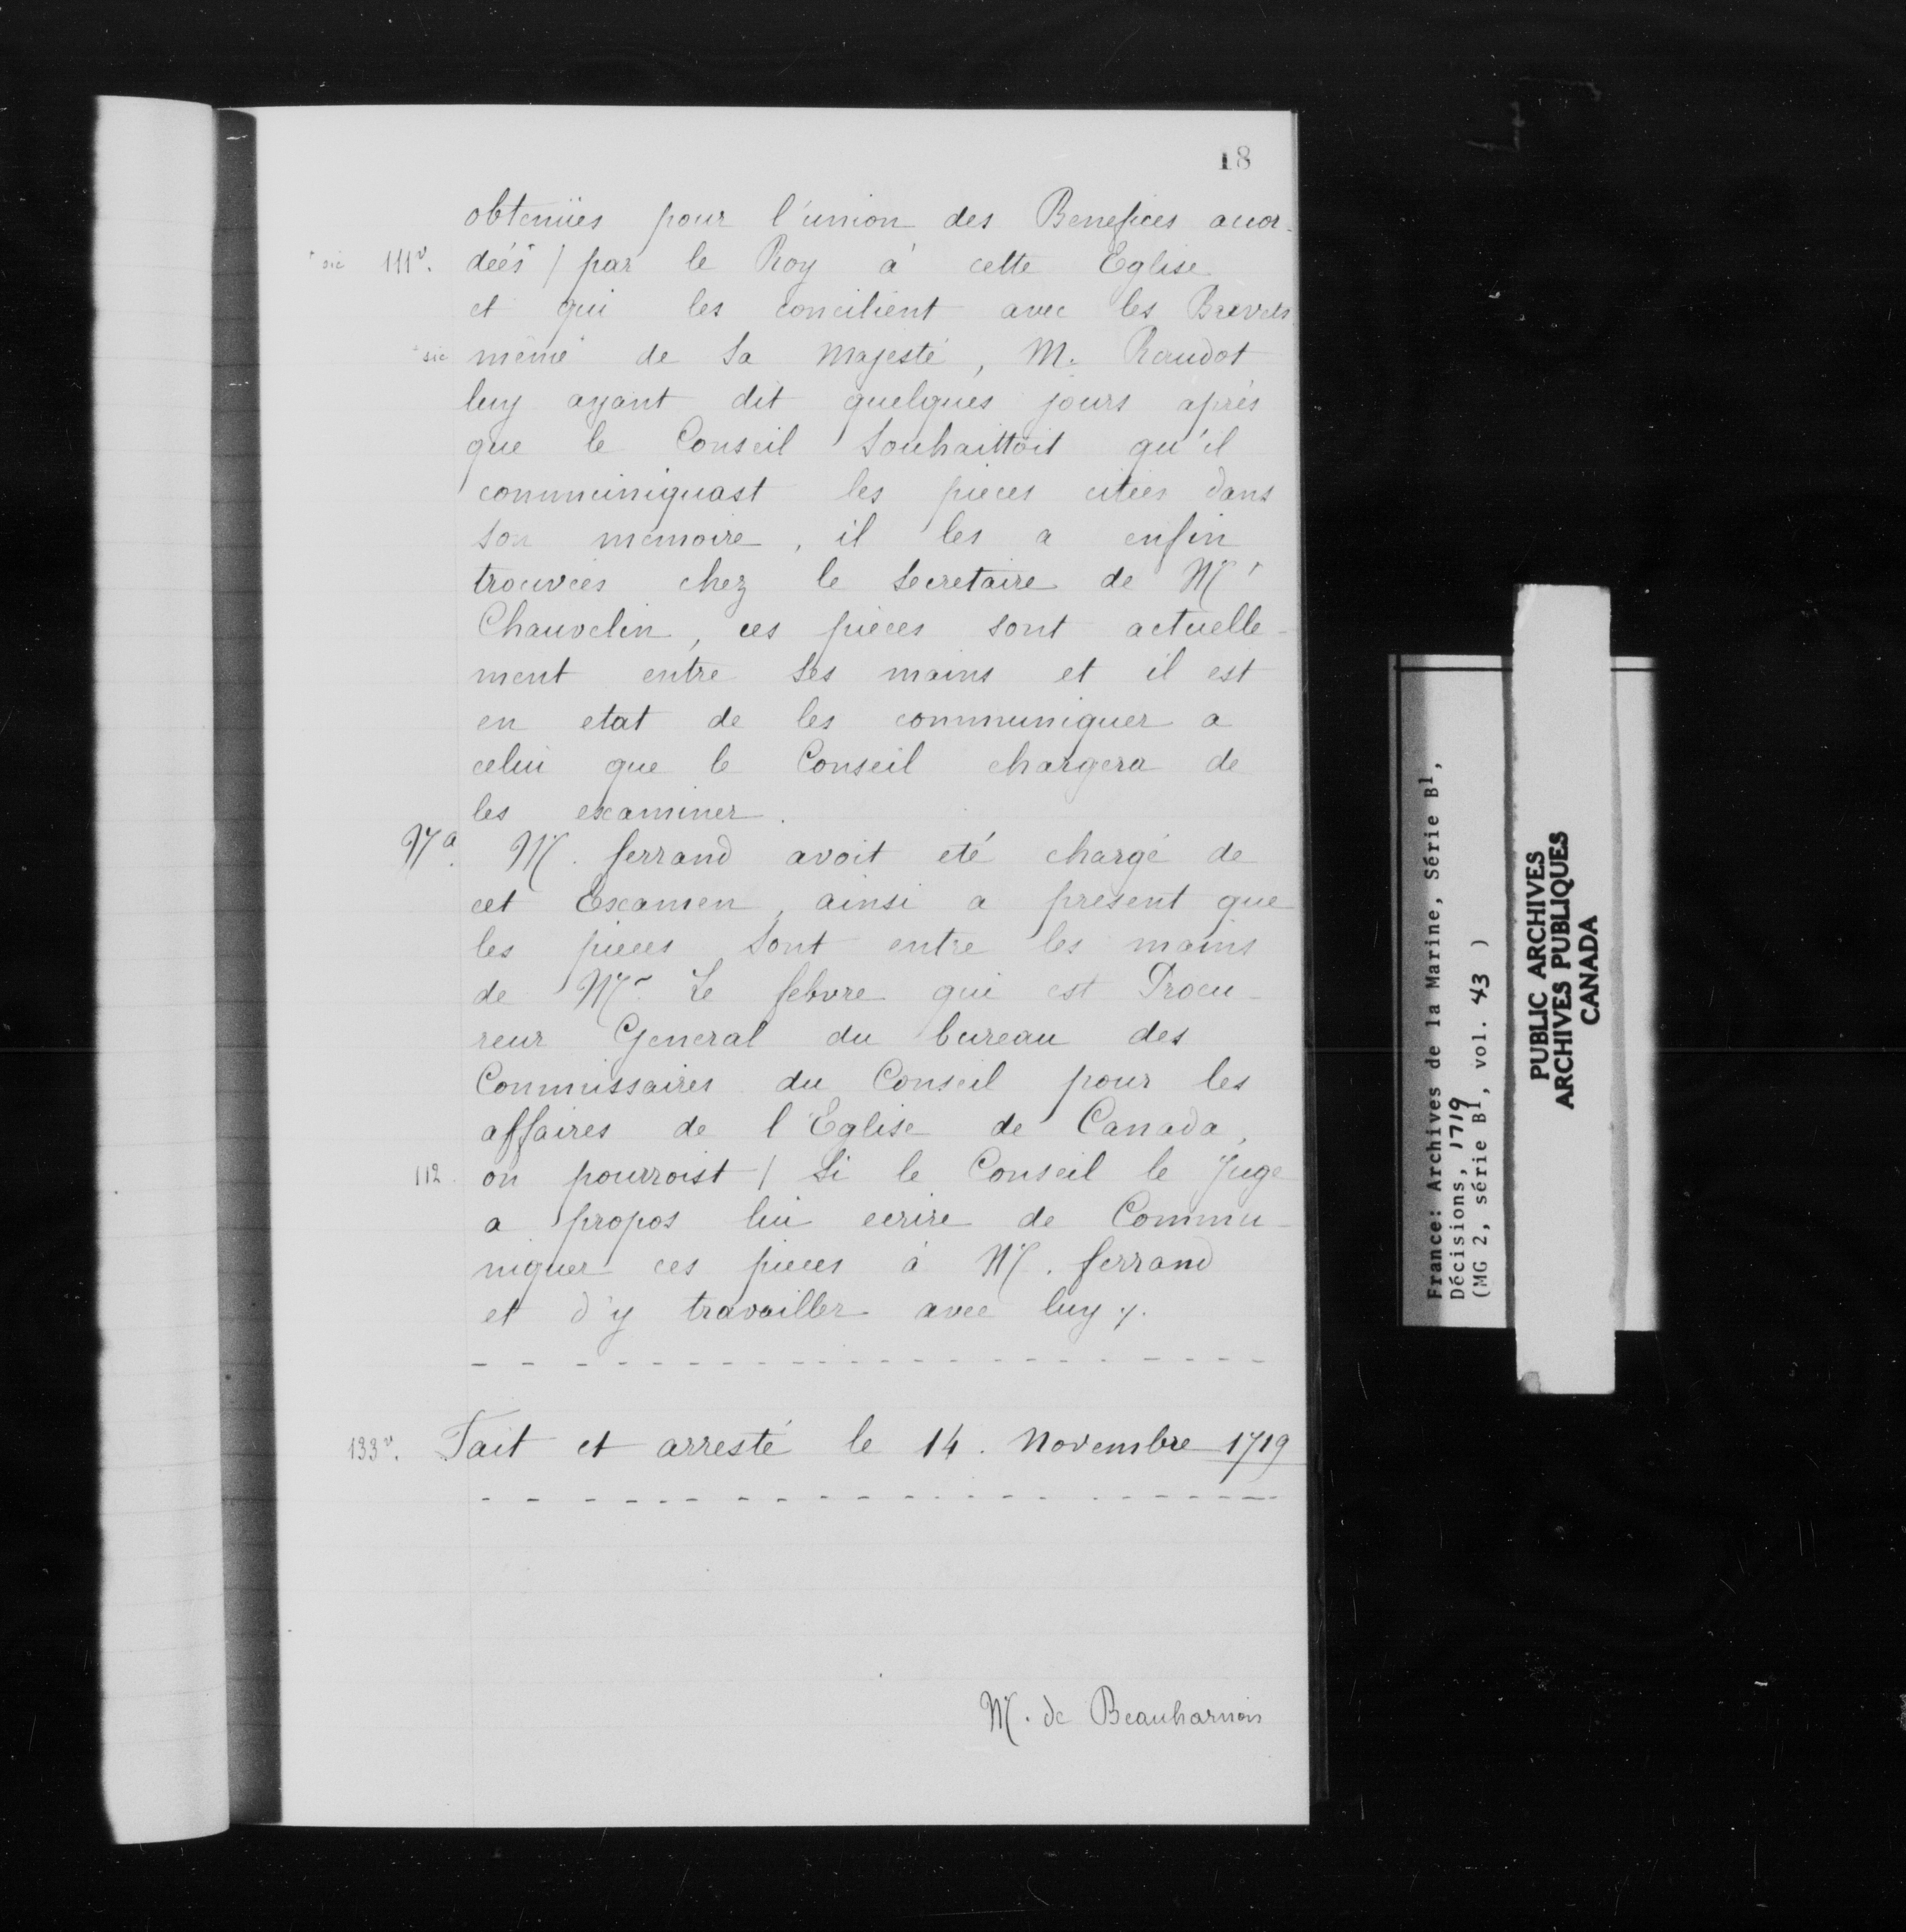 18
obtenües pour l'union des Benefices accor-
* sic 111v. deés* / par le Roy à cette Eglise
et qui les concilient avec les Brevets
* sic même* de Sa Majesté, M. Raudot
luy ayant dit quelques jours après
que le Conseil Souhaittoit qu'il
communiquast les pieces citées dans
Son memoire, il les a enfin
trouvées chez le Secretaire de Mr
Chauvelin, ces pièces sont actuelle-
ment entre Ses mains et il est
en etat de les communiquer a
celui que le Conseil chargera de
les examiner.
Na. M. ferrand avoit eté chargé de
cet Examen, ainsi a present que
les pieces Sont entre les mains
de Mr. Le febvre qui est Procu-
reur General du bureau des
Commissaires du Conseil pour les
affaires de l'Eglise de Canada,
112. on pourroist / Si le Conseil le Juge
a propos lui ecrire de Commu-
niquer ces pieces à M. ferrand
et d'y travailler avec luy y.
133v. Fait et arresté le 14. Novembre 1719
M. de Beauharnois
France: Archives de la Marine, Série B1,
Décisions, 1719
(MG 2, série B1, vol. 43 )
PUBLIC ARCHIVES
ARCHIVES PUBLIQUES
CANADA